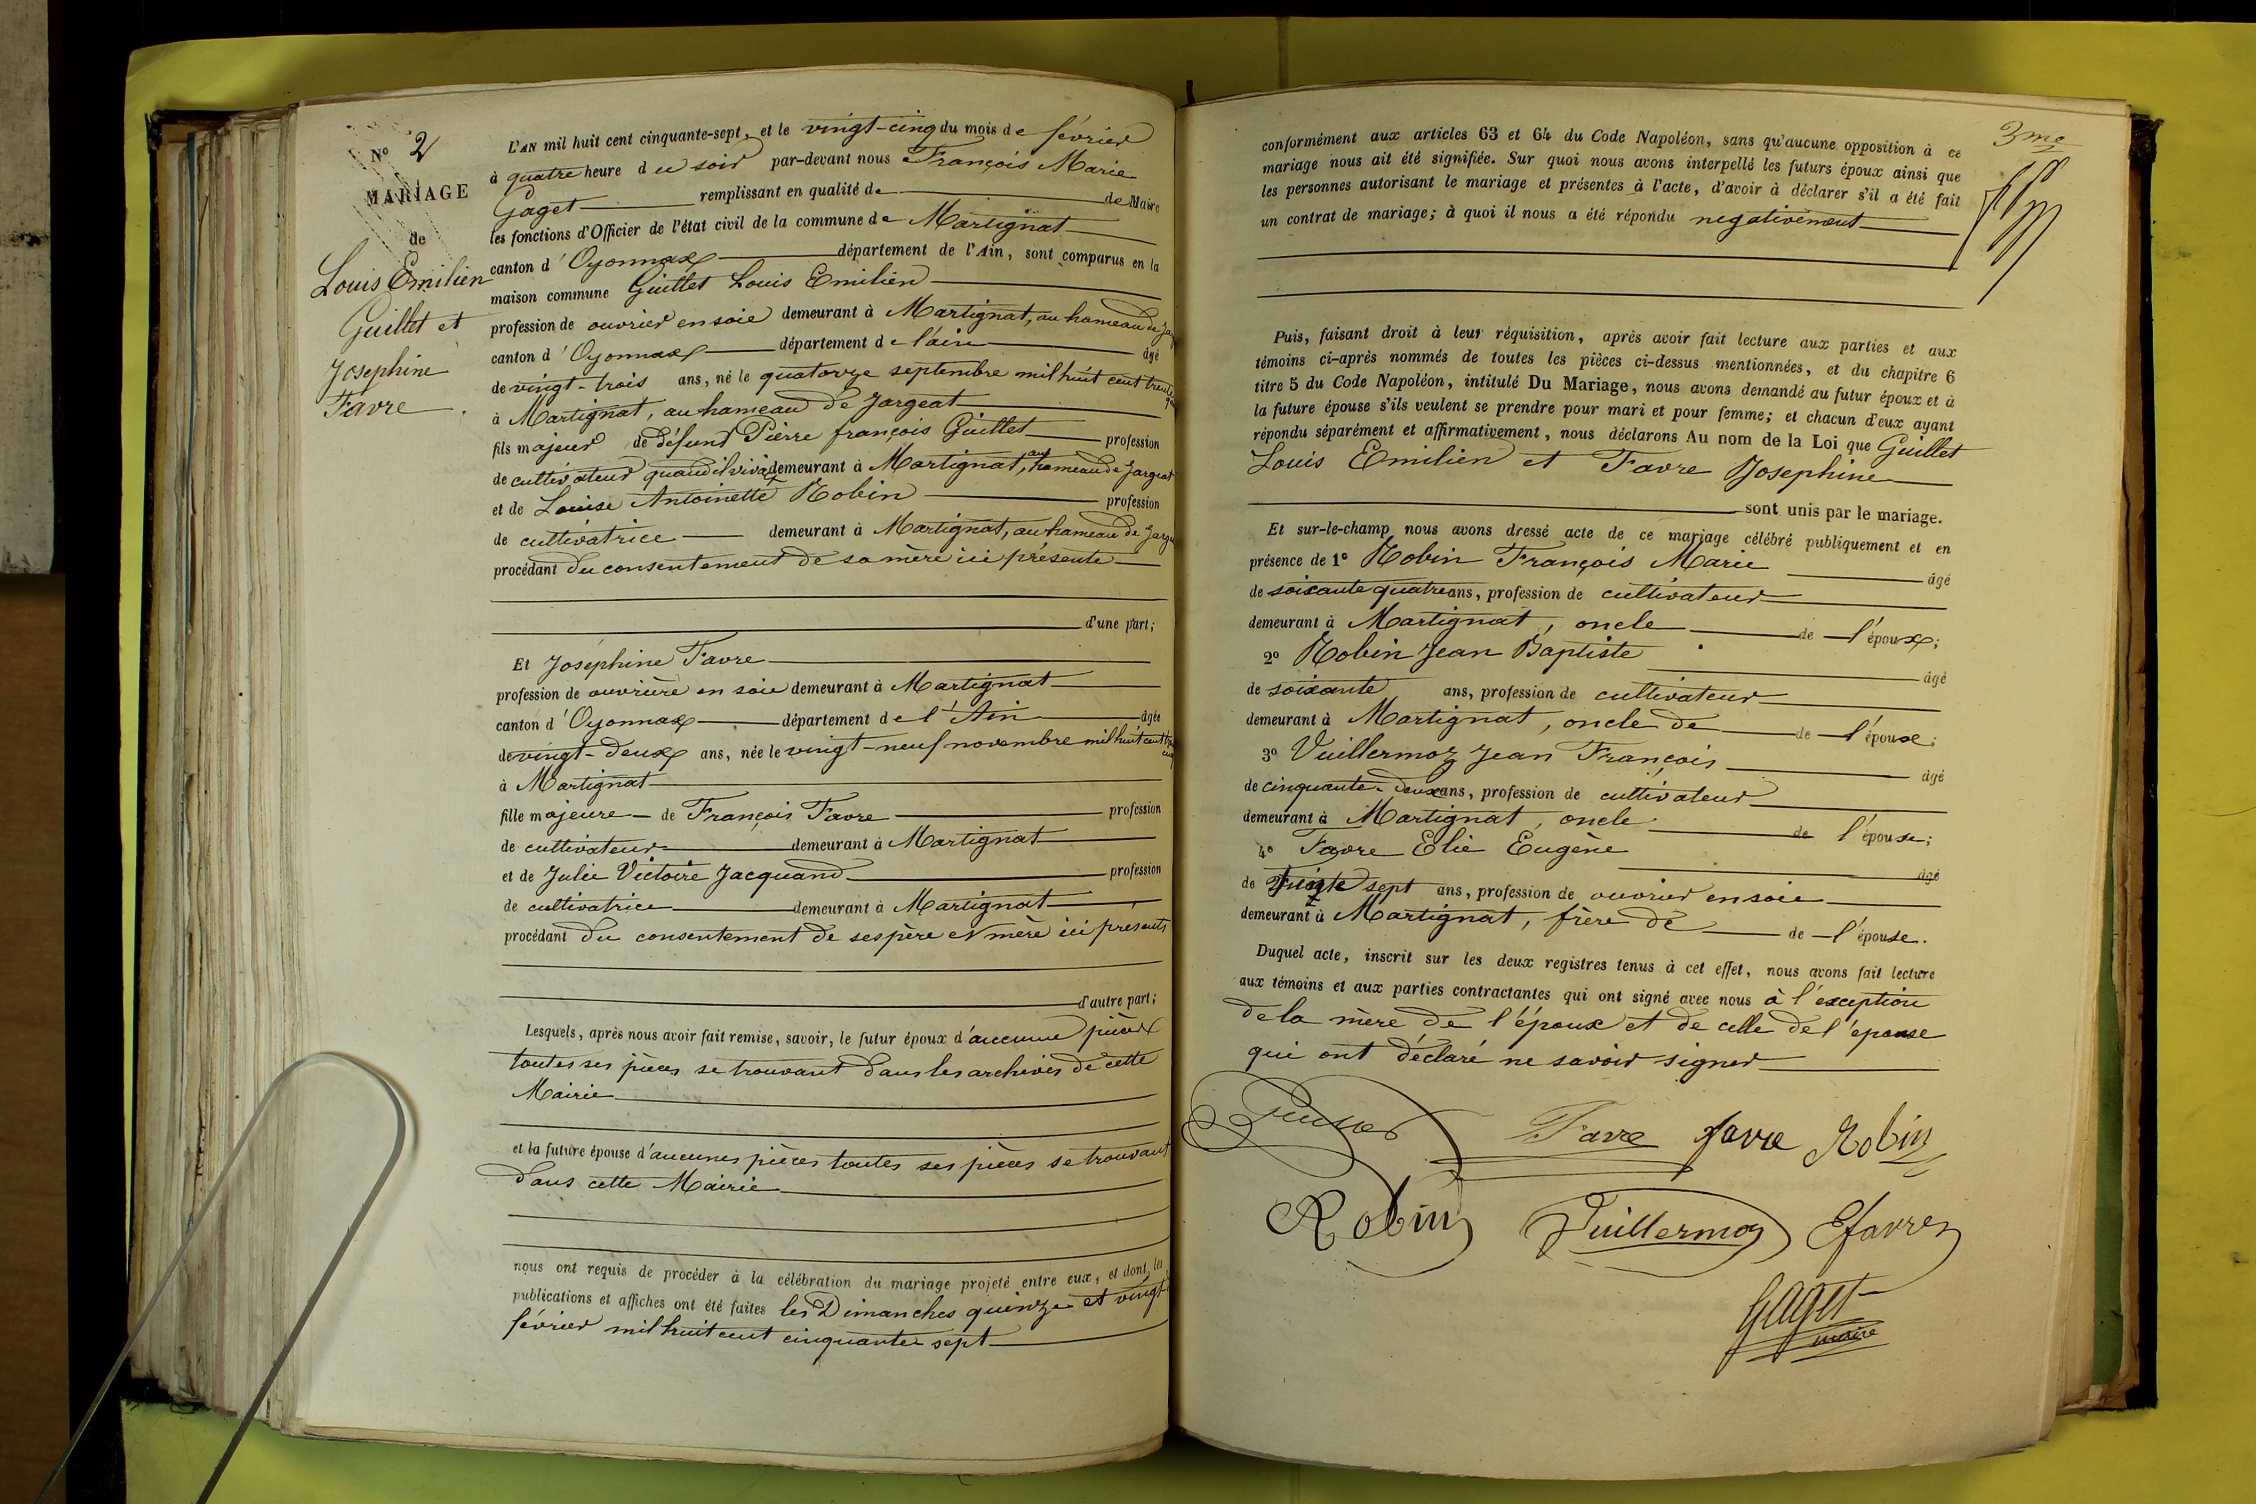 N° 2
MARIAGE
de
Louis Emilien
Guillet et
Josephine
Favre
L'AN mil huit cent cinquante-sept, et le vingt-cinq du mois de février
à quatre heure du soir par-devant nous François Marie
Gaget remplissant en qualité de de Maire
les fonctions d'Officier de l'état civil de la commune de Martignat
canton d'Oyonnax département de l'Ain, sont comparus en la
maison commune Guillet Louis Emilien
profession de ouvrier en soie demeurant à Martignat, au hameau de
canton d'Oyonnax département de l'ain âgé
de vingt-trois ans, né le quatorze septembre mil huit cent trente
à Martignat, au hameau de Jargeat
fils majeur de défunt Pierre françois Guillet profession
de cultivateur quand il vivait demeurant à Martignat, au hameau de Jargeat
et de Louise Antoinette Robin profession
de cultivatrice demeurant à Martignat, au hameau de
procédant du consentement de sa mère ici présente
d'une part;
Et Joséphine Favre
profession de ouvrière en soie demeurant à Martignat
canton d'Oyonnax département de l'Ain âgée
de vingt-deux ans, née le vingt-neuf novembre mil huit cent
à Martignat
fille majeure de François Favre profession
de cultivateur demeurant à Martignat
et de Julie Victoire Jacquand profession
de cultivatrice demeurant à Martignat
procédant du consentement de ses père et mère ici présents
d'autre part;
Lesquels, après nous avoir fait remise, savoir, le futur époux d'aucune pièce
toutes ses pièces se trouvant dans les archives de cette
Mairie
et la future épouse d'aucunes pièces toutes ses pièces se trouvant
dans cette Mairie
nous ont requis de procéder à la célébration du mariage projeté entre eux, et dont les
publications et affiches ont été faites les Dimanches quinze et vingt
février mil huit cent cinquante sept
3me
conformément aux articles 63 et 64 du Code Napoléon, sans qu'aucune opposition à ce
mariage nous ait été signifiée. Sur quoi nous avons interpellé les futurs époux ainsi que
les personnes autorisant le mariage et présentes à l'acte, d'avoir à déclarer s'il a été fait
un contrat de mariage; à quoi il nous a été répondu negativement
Puis, faisant droit à leur réquisition, après avoir fait lecture aux parties et aux
témoins ci-après nommés de toutes les pièces ci-dessus mentionnées, et du chapitre 6
titre 5 du Code Napoléon, intitulé Du Mariage, nous avons demandé au futur époux et à
la future épouse s'ils veulent se prendre pour mari et pour femme; et chacun d'eux ayant
répondu séparément et affirmativement, nous déclarons Au nom de la Loi que Guillet
Louis Emilien et Favre Josephine
sont unis par le mariage.
Et sur-le-champ nous avons dressé acte de ce mariage célébré publiquement et en
présence de 1° Robin François Marie âgé
de soixante quatre ans, profession de cultivateur
demeurant à Martignat, oncle de l'époux;
2° Robin Jean Baptiste âgé
de soixante ans, profession de cultivateur
demeurant à Martignat, oncle de de l'épouse;
3° Vuillermoz Jean François âgé
de cinquante-deux ans, profession de cultivateur
demeurant à Martignat, oncle de l'épouse;
4° Favre Elie Eugène âgé
de sept ans, profession de ouvrier en soie
demeurant à Martignat, frère de de l'épouse.
Duquel acte, inscrit sur les deux registres tenus à cet effet, nous avons fait lecture
aux témoins et aux parties contractantes qui ont signé avec nous à l'exception
de la mère de l'époux et de celle de l'épouse
qui ont déclaré ne savoir signer
Favre favre Robin
Robin Vuillermoz Efavre
Gaget
maire